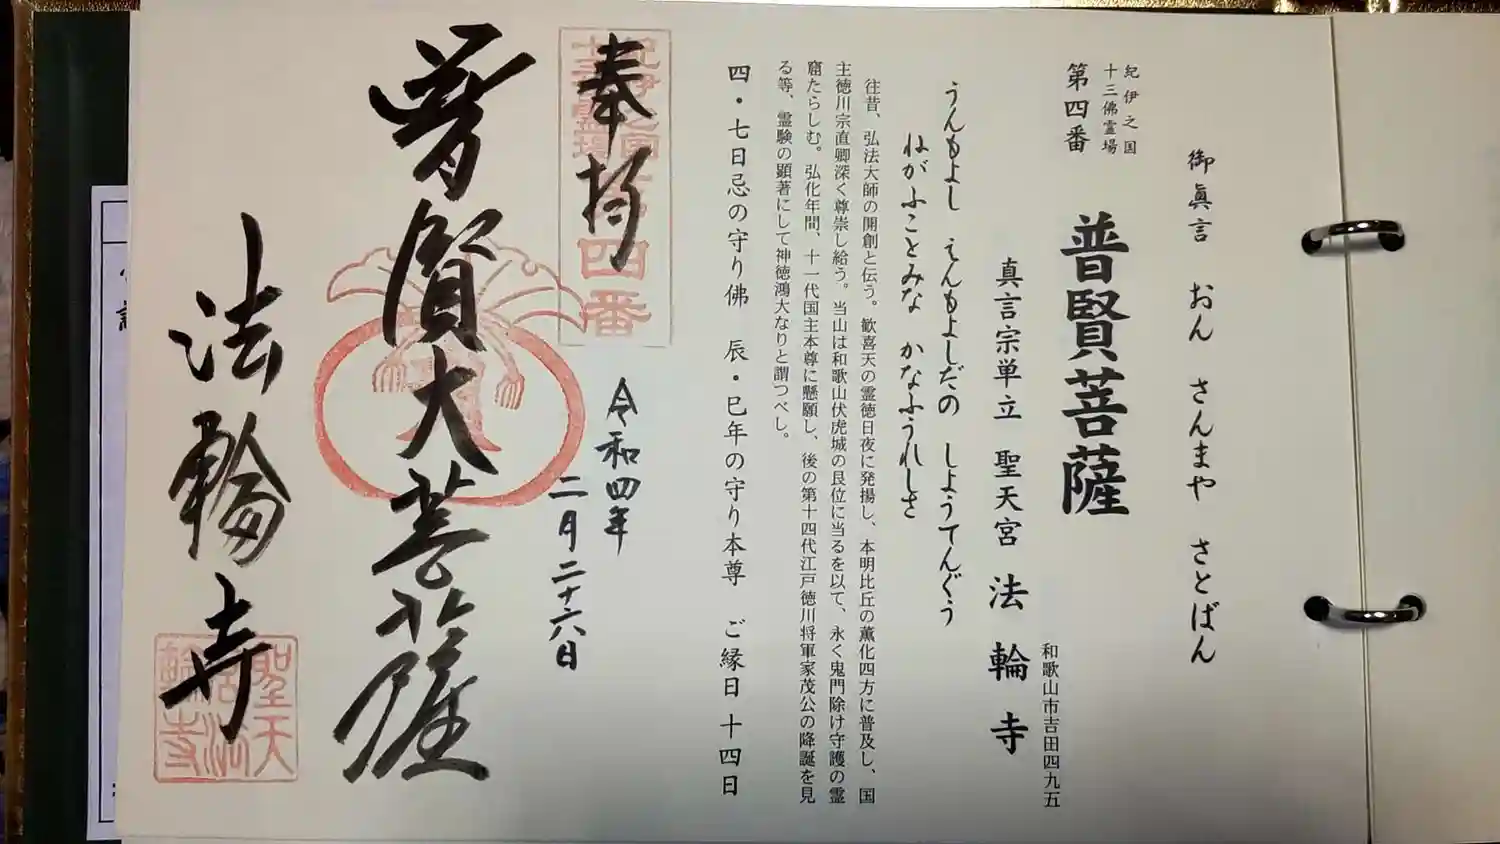 御眞言　おん　さんまや　さとばん
紀伊之国
十三佛霊場
第四番
普賢菩薩
和歌山市吉田四九五
真言宗単立　聖天宮　法輪寺
うんもよし　えんもよしだの　しようてんぐう
ねがふことみな　かなふうれしさ
往昔、弘法大師の開創と伝う。歓喜天の霊徳日夜に発揚し、本明比丘の薫化四方に普及し、国
主徳川宗直卿深く尊崇し給う。当山は和歌山伏虎城の艮位に当るを以て、永く鬼門除け守護の霊
窟たらしむ。弘化年間、十一代国主本尊に懸願し、後の第十四代江戸徳川将軍家茂公の降誕を見
る等、霊験の顕著にして神徳鴻大なりと謂つべし。
四・七日忌の守り佛　辰・巳年の守り本尊　ご縁日　十四日
奉拝
紀伊之国
十三霊場
四番
令和四年
二月二十六日
普賢大菩薩
法輪寺
聖天
宮法
輪寺